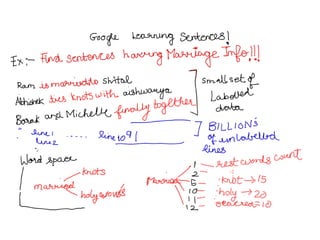 Google Learning Sentences!
Ex:- Find sentences having Marriage Info!!!
Ram is married to Shital
Abhishek ties knots with aishwarya
Barak and Michelle finally together
small set of
Labelled
data
line1
line2
... line 109!
BILLIONS
of unlabelled
lines
Word space
married
knots
holy
Married
1
2
5
10
11
12
rest words count
knot → 15
holy → 20
=10